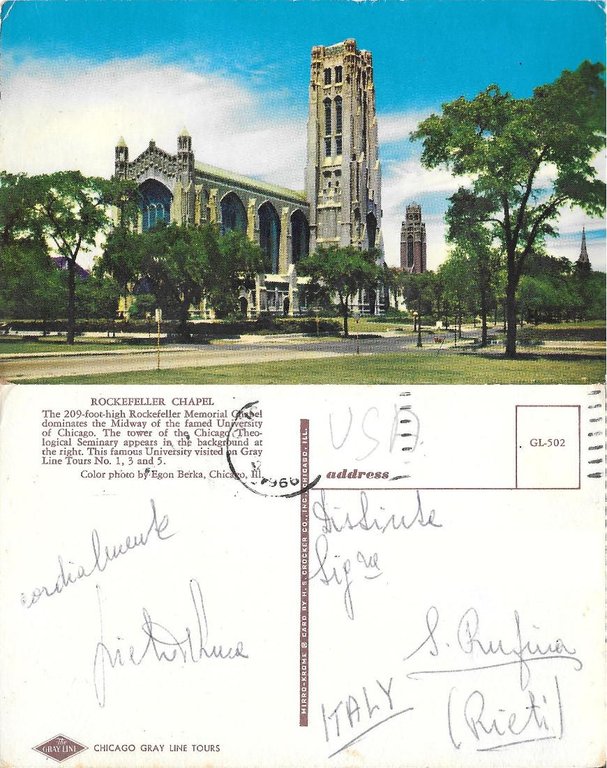 ROCKEFELLER CHAPEL
The 209-foot-high Rockefeller Memorial Chapel
dominates the Midway of the famed University
of Chicago. The tower of the Chicago Theo-
logical Seminary appears in the background at
the right. This famous University visited on Gray
Line Tours No. 1, 3 and 5.
Color photo by Egon Berka, Chicago, Ill.
1966
cordialmente
The
GRAY LINE
CHICAGO GRAY LINE TOURS
MIRRO-KROME ® CARD BY H. S. CROCKER CO., INC. CHICAGO, ILL.
USA
address
GL-502
Distinte
Sig.re
S. Rufina
(Rieti)
ITALY